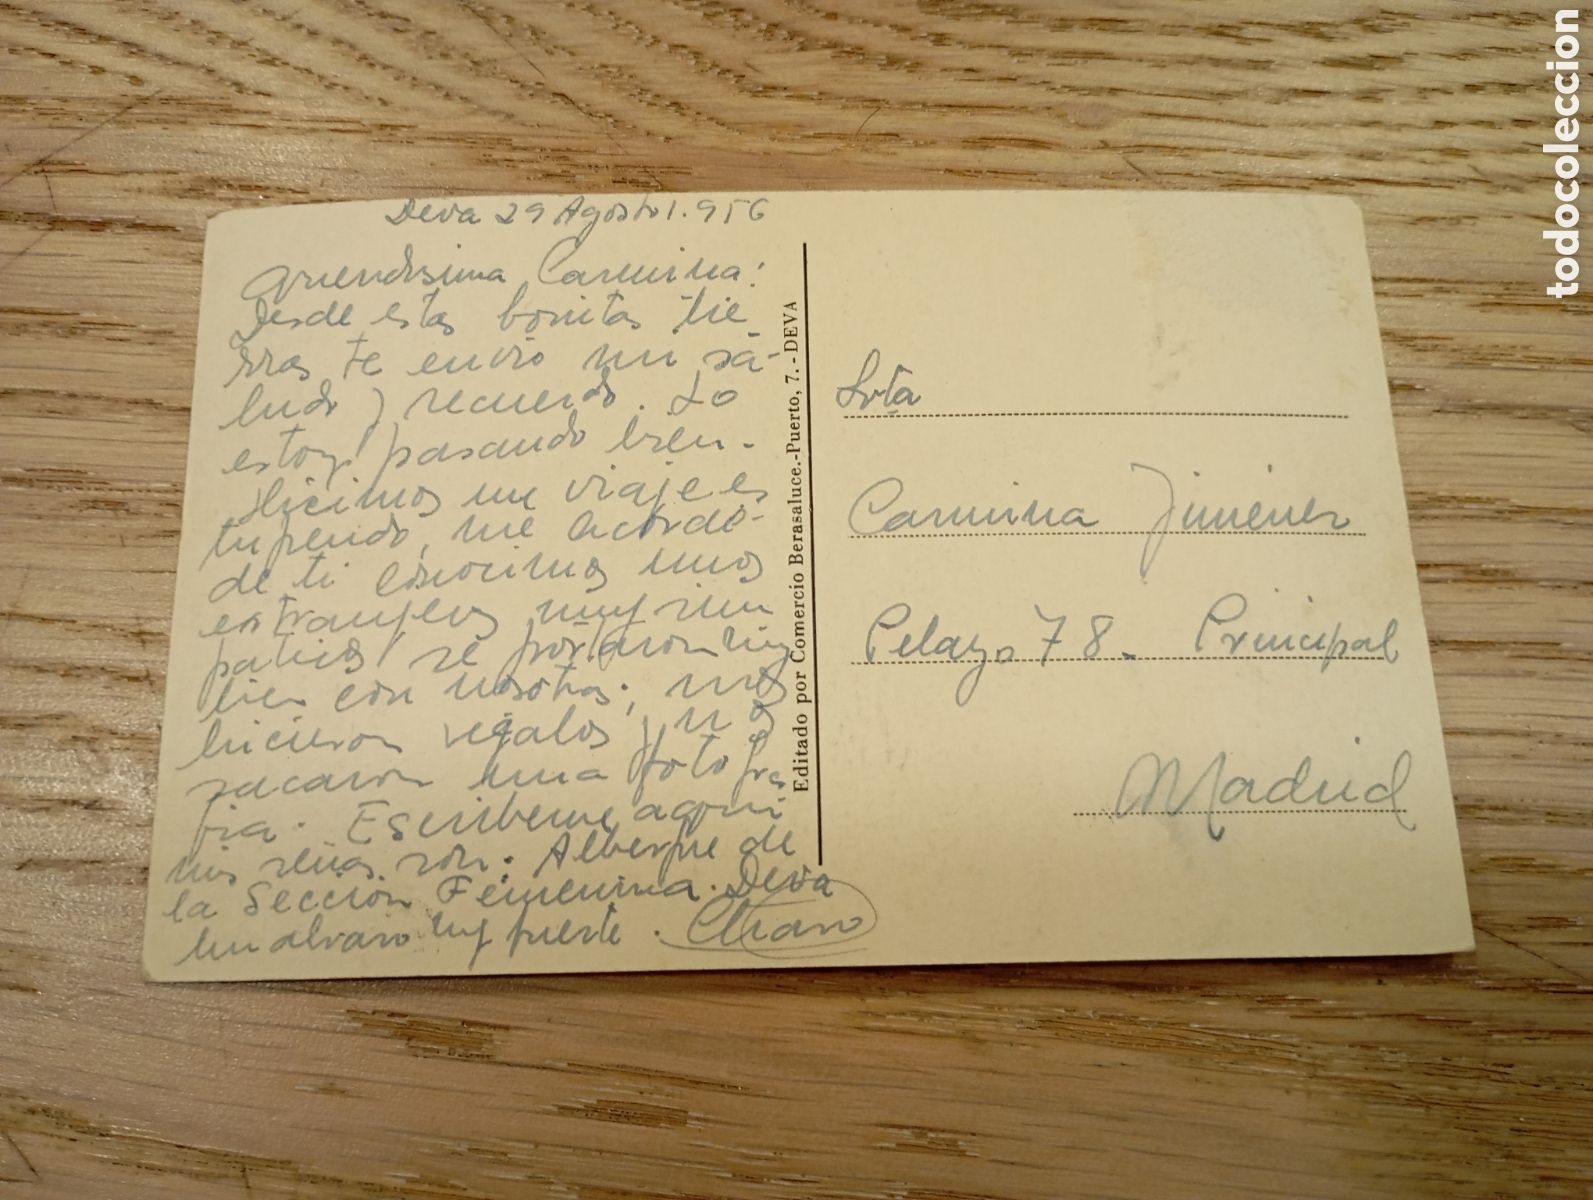 Deva 29 Agosto 1.956
Queridisima Carmina:
Desde estas bonitas tie-
rras te envio un sa-
ludo y recuerdo. Lo
estoy pasando bien.
Hicimos un viaje es
tupendo, me acordé
de ti conocimos unos
extranjeros muy sim
paticos se portaron muy
bien con nosotras; nos
hicieron regalos y nos
sacaron una fotogra
fia. Escribeme aqui
mis señas son. Albergue de
la Sección Femenina. Deva
Un abrazo muy fuerte.
Editado por Comercio Berasaluce.-Puerto, 7. - DEVA
Srta
Carmina Jimenez
Pelayo 78. Principal
Madrid
todocoleccion